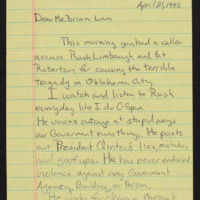 April 21, 1995
Dear Mr. Brian Lam
This morning you had a caller
accuse Rush Limbaugh and Pat
Robertson for causing the terrible
tragady in Oklahoma City.
I watch and listen to Rush
everyday like I do CSpan.
He voices outrage at stupid ways
our Goverment runs things. He points
out President Clinton's lies, mistakes,
and goof ups. He has never endorsed
violence against any Goverment
Agency, Building, or Person.
He works for change through